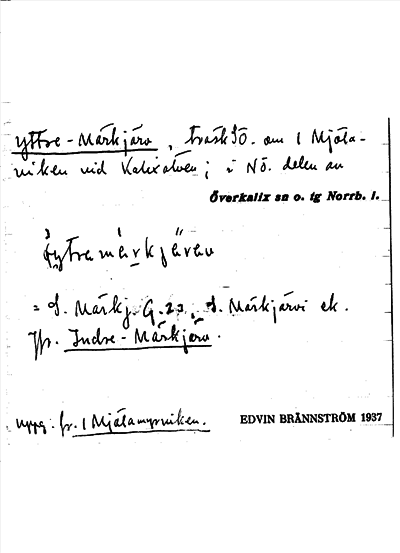 Yttre-Märkjärv, träsk SÖ. om 1 Mjöla-
viken vid Kalixälven; i NÖ. delen av
Överkalix sn o. tg Norrb. l.
= S. Märkj. G. 23, S. Märkjärvi ek.
Jfr. Indre-Märkjärv.
uppg. fr. 1 Mjölamyrviken.
EDVIN BRÄNNSTRÖM 1937